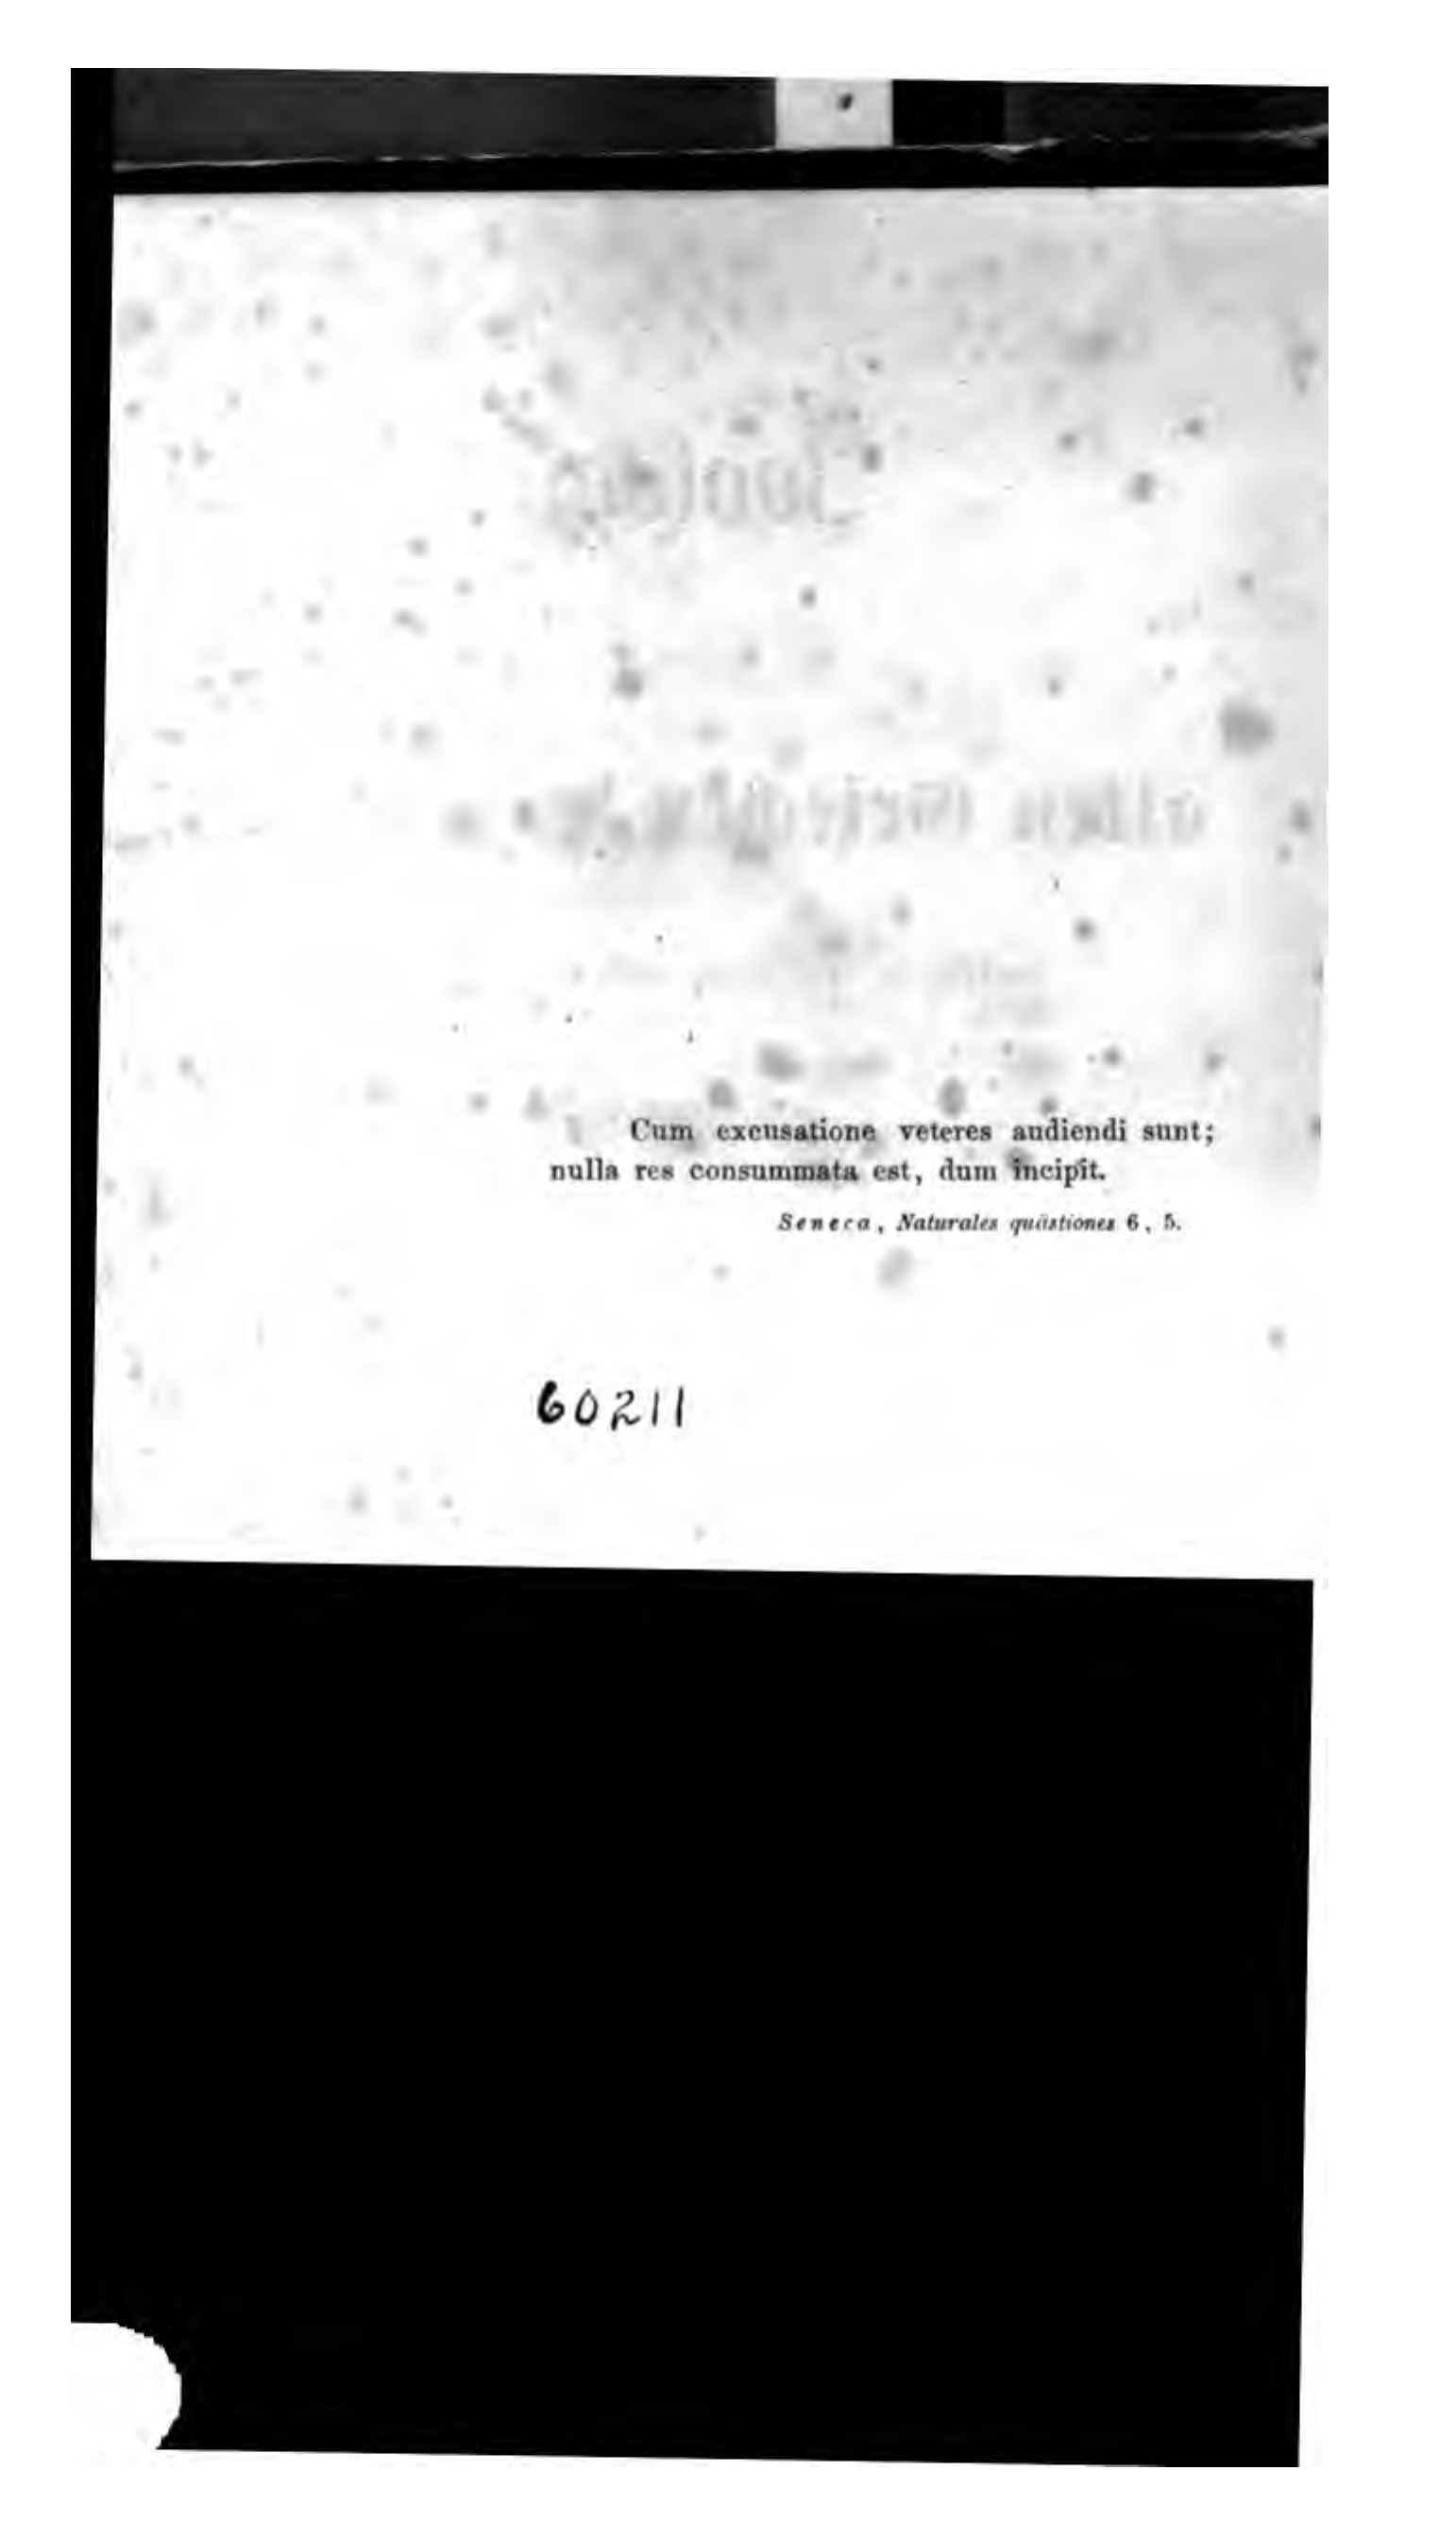 Cum excusatione veteres audiendi sunt;
nulla res consummata est, dum incipit.
Seneca, Naturales quästiones 6, 5.
60211